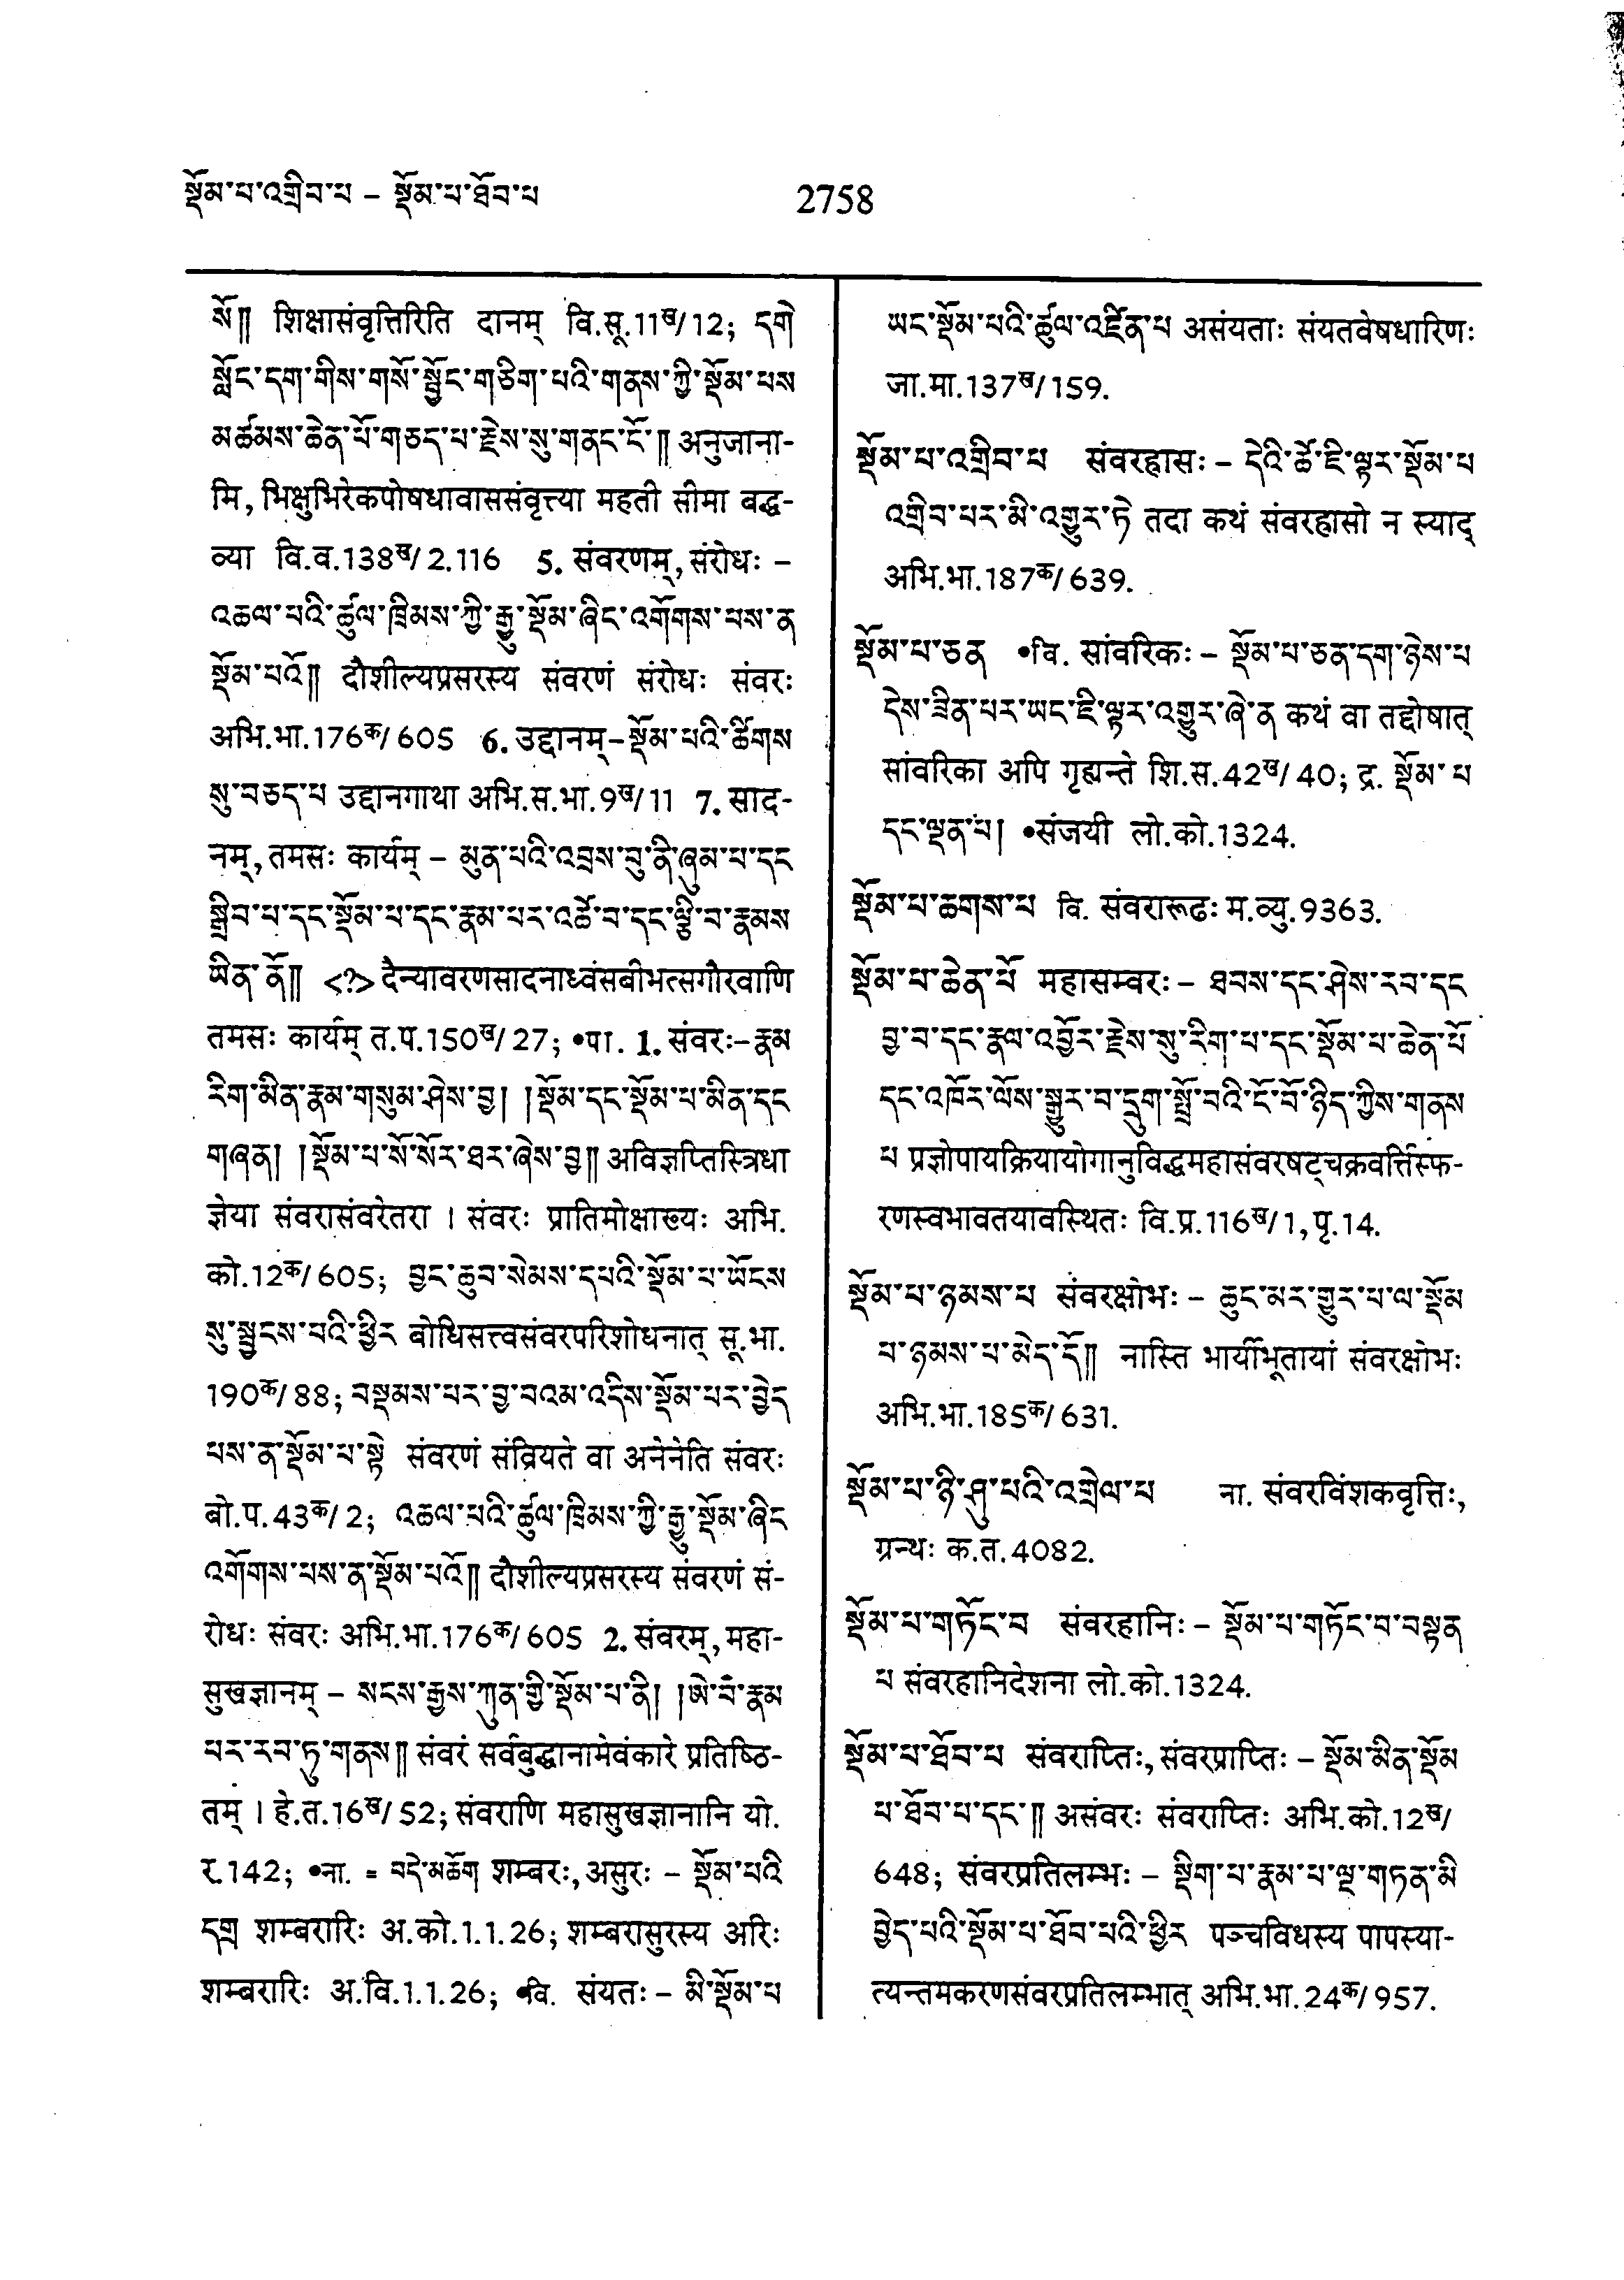 སྡོམ་པ་འགྲིབ་པ – སྡོམ་པ་ཐོབ་པ
2758
སོ།། शिक्षासंवृत्तिरिति दानम् वि.सू.11ख/12; དགེ
སློང་དག་གིས་གསོ་སྦྱོང་གཅིག་པའི་གནས་ཀྱི་སྡོམ་པས
མཚམས་ཆེན་པོ་གཅད་པ་རྗེས་སུ་གནང་ངོ་།། अनुजाना-
मि, भिक्षुभिरेकपोषधावाससंवृत्त्या महती सीमा बद्ध-
व्या वि.व.138ख/2.116 5. संवरणम्, संरोधः –
འཆལ་པའི་ཚུལ་ཁྲིམས་ཀྱི་རྒྱུ་སྡོམ་ཞིང་འགོགས་པས་ན
སྡོམ་པའོ།། दौशील्यप्रसरस्य संवरणं संरोधः संवरः
अभि.भा.176क/605 6. उद्दानम्–སྡོམ་པའི་ཚིགས
སུ་བཅད་པ उद्दानगाथा अभि.स.भा.9ख/11 7. साद-
नम्, तमसः कार्यम् – མུན་པའི་འབྲས་བུ་ནི་ཞུམ་པ་དང
སྒྲིབ་པ་དང་སྡོམ་པ་དང་རྣམ་པར་འཚེ་བ་དང་ལྕི་བ་རྣམས
ཡིན་ནོ།། <?> दैन्यावरणसादनाध्वंसबीभत्सगौरवाणि
तमसः कार्यम् त.प.150ख/27; •पा. 1. संवरः–རྣམ
རིག་མིན་རྣམ་གསུམ་ཤེས་བྱ། །སྡོམ་དང་སྡོམ་པ་མིན་དང
གཞན། །སྡོམ་པ་སོ་སོར་ཐར་ཞེས་བྱ།། अविज्ञप्तिस्त्रिधा
ज्ञेया संवरासंवरेतरा । संवरः प्रातिमोक्षाख्यः अभि.
को.12क/605; བྱང་ཆུབ་སེམས་དཔའི་སྡོམ་པ་ཡོངས
སུ་སྦྱངས་པའི་ཕྱིར बोधिसत्त्वसंवरपरिशोधनात् सू.भा.
190क/88; བསྡམས་པར་བྱ་བའམ་འདིས་སྡོམ་པར་བྱེད
པས་ན་སྡོམ་པ་སྟེ संवरणं संव्रियते वा अनेनेति संवरः
बो.प.43क/2; འཆལ་པའི་ཚུལ་ཁྲིམས་ཀྱི་རྒྱུ་སྡོམ་ཞིང
འགོགས་པས་ན་སྡོམ་པའོ།། दौशील्यप्रसरस्य संवरणं सं-
रोधः संवरः अभि.भा.176क/605 2. संवरम्, महा-
सुखज्ञानम् – སངས་རྒྱས་ཀུན་གྱི་སྡོམ་པ་ནི། །ཨེ་བཾ་རྣམ
པར་རབ་ཏུ་གནས།། संवरं सर्वबुद्धानामेवंकारे प्रतिष्ठि-
तम् । हे.त.16ख/52; संवराणि महासुखज्ञानानि यो.
र.142; •ना. = བདེ་མཆོག शम्बरः, असुरः – སྡོམ་པའི
དགྲ शम्बरारिः अ.को.1.1.26; शम्बरासुरस्य अरिः
शम्बरारिः अ.वि.1.1.26; •वि. संयतः – མི་སྡོམ་པ
ཡང་སྡོམ་པའི་ཚུལ་འཛིན་པ असंयताः संयतवेषधारिणः
जा.मा.137ख/159.
སྡོམ་པ་འགྲིབ་པ संवरह्रासः – དེའི་ཚེ་ཇི་ལྟར་སྡོམ་པ
འགྲིབ་པར་མི་འགྱུར་ཏེ तदा कथं संवरह्रासो न स्याद्
अभि.भा.187क/639.
སྡོམ་པ་ཅན •वि. सांवरिकः – སྡོམ་པ་ཅན་དག་ཉེས་པ
དེས་ཟིན་པར་ཡང་ཇི་ལྟར་འགྱུར་ཞེ་ན कथं वा तद्दोषात्
सांवरिका अपि गृह्यन्ते शि.स.42ख/40; द्र. སྡོམ་པ
དང་ལྡན་པ། •संजयी लो.को.1324.
སྡོམ་པ་ཆགས་པ वि. संवरारूढः म.व्यु.9363.
སྡོམ་པ་ཆེན་པོ महासम्वरः – ཐབས་དང་ཤེས་རབ་དང
བྱ་བ་དང་རྣལ་འབྱོར་རྗེས་སུ་རིག་པ་དང་སྡོམ་པ་ཆེན་པོ
དང་འཁོར་ལོས་སྒྱུར་བ་དྲུག་སྤྲོ་བའི་ངོ་བོ་ཉིད་ཀྱིས་གནས
པ प्रज्ञोपायक्रियायोगानुविद्धमहासंवरषट्चक्रवर्त्तिस्फ-
रणस्वभावतयावस्थितः वि.प्र.116ख/1, पृ.14.
སྡོམ་པ་ཉམས་པ संवरक्षोभः – ཆུང་མར་གྱུར་པ་ལ་སྡོམ
པ་ཉམས་པ་མེད་དོ།། नास्ति भार्यीभूतायां संवरक्षोभः
अभि.भा.185क/631.
སྡོམ་པ་ཉི་ཤུ་པའི་འགྲེལ་པ ना. संवरविंशकवृत्तिः,
ग्रन्थः क.त.4082.
སྡོམ་པ་གཏོང་བ संवरहानिः – སྡོམ་པ་གཏོང་བ་བསྟན
པ संवरहानिदेशना लो.को.1324.
སྡོམ་པ་ཐོབ་པ संवराप्तिः, संवरप्राप्तिः – སྡོམ་མིན་སྡོམ
པ་ཐོབ་པ་དང་།། असंवरः संवराप्तिः अभि.को.12ख/
648; संवरप्रतिलम्भः – སྡིག་པ་རྣམ་པ་ལྔ་གཏན་མི
བྱེད་པའི་སྡོམ་པ་ཐོབ་པའི་ཕྱིར पञ्चविधस्य पापस्या-
त्यन्तमकरणसंवरप्रतिलम्भात् अभि.भा.24क/957.